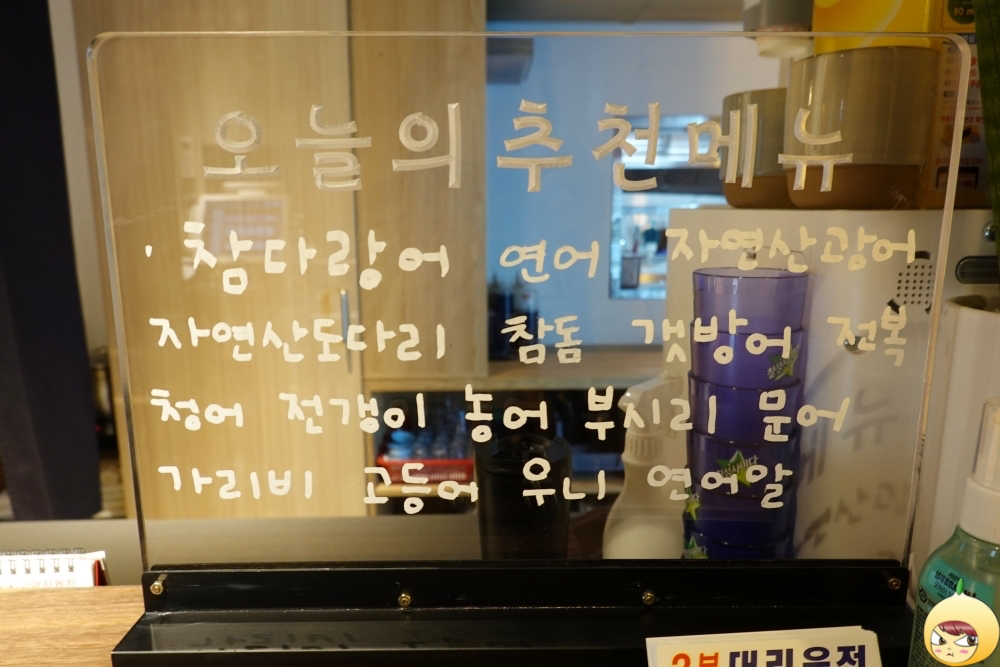 오늘의추천메뉴
· 참다랑어 연어 자연산광어
자연산도다리 참돔 갯방어 전복
청어 전갱이 농어 부시리 문어
가리비 고등어 우니 연어알
2부 대리운전